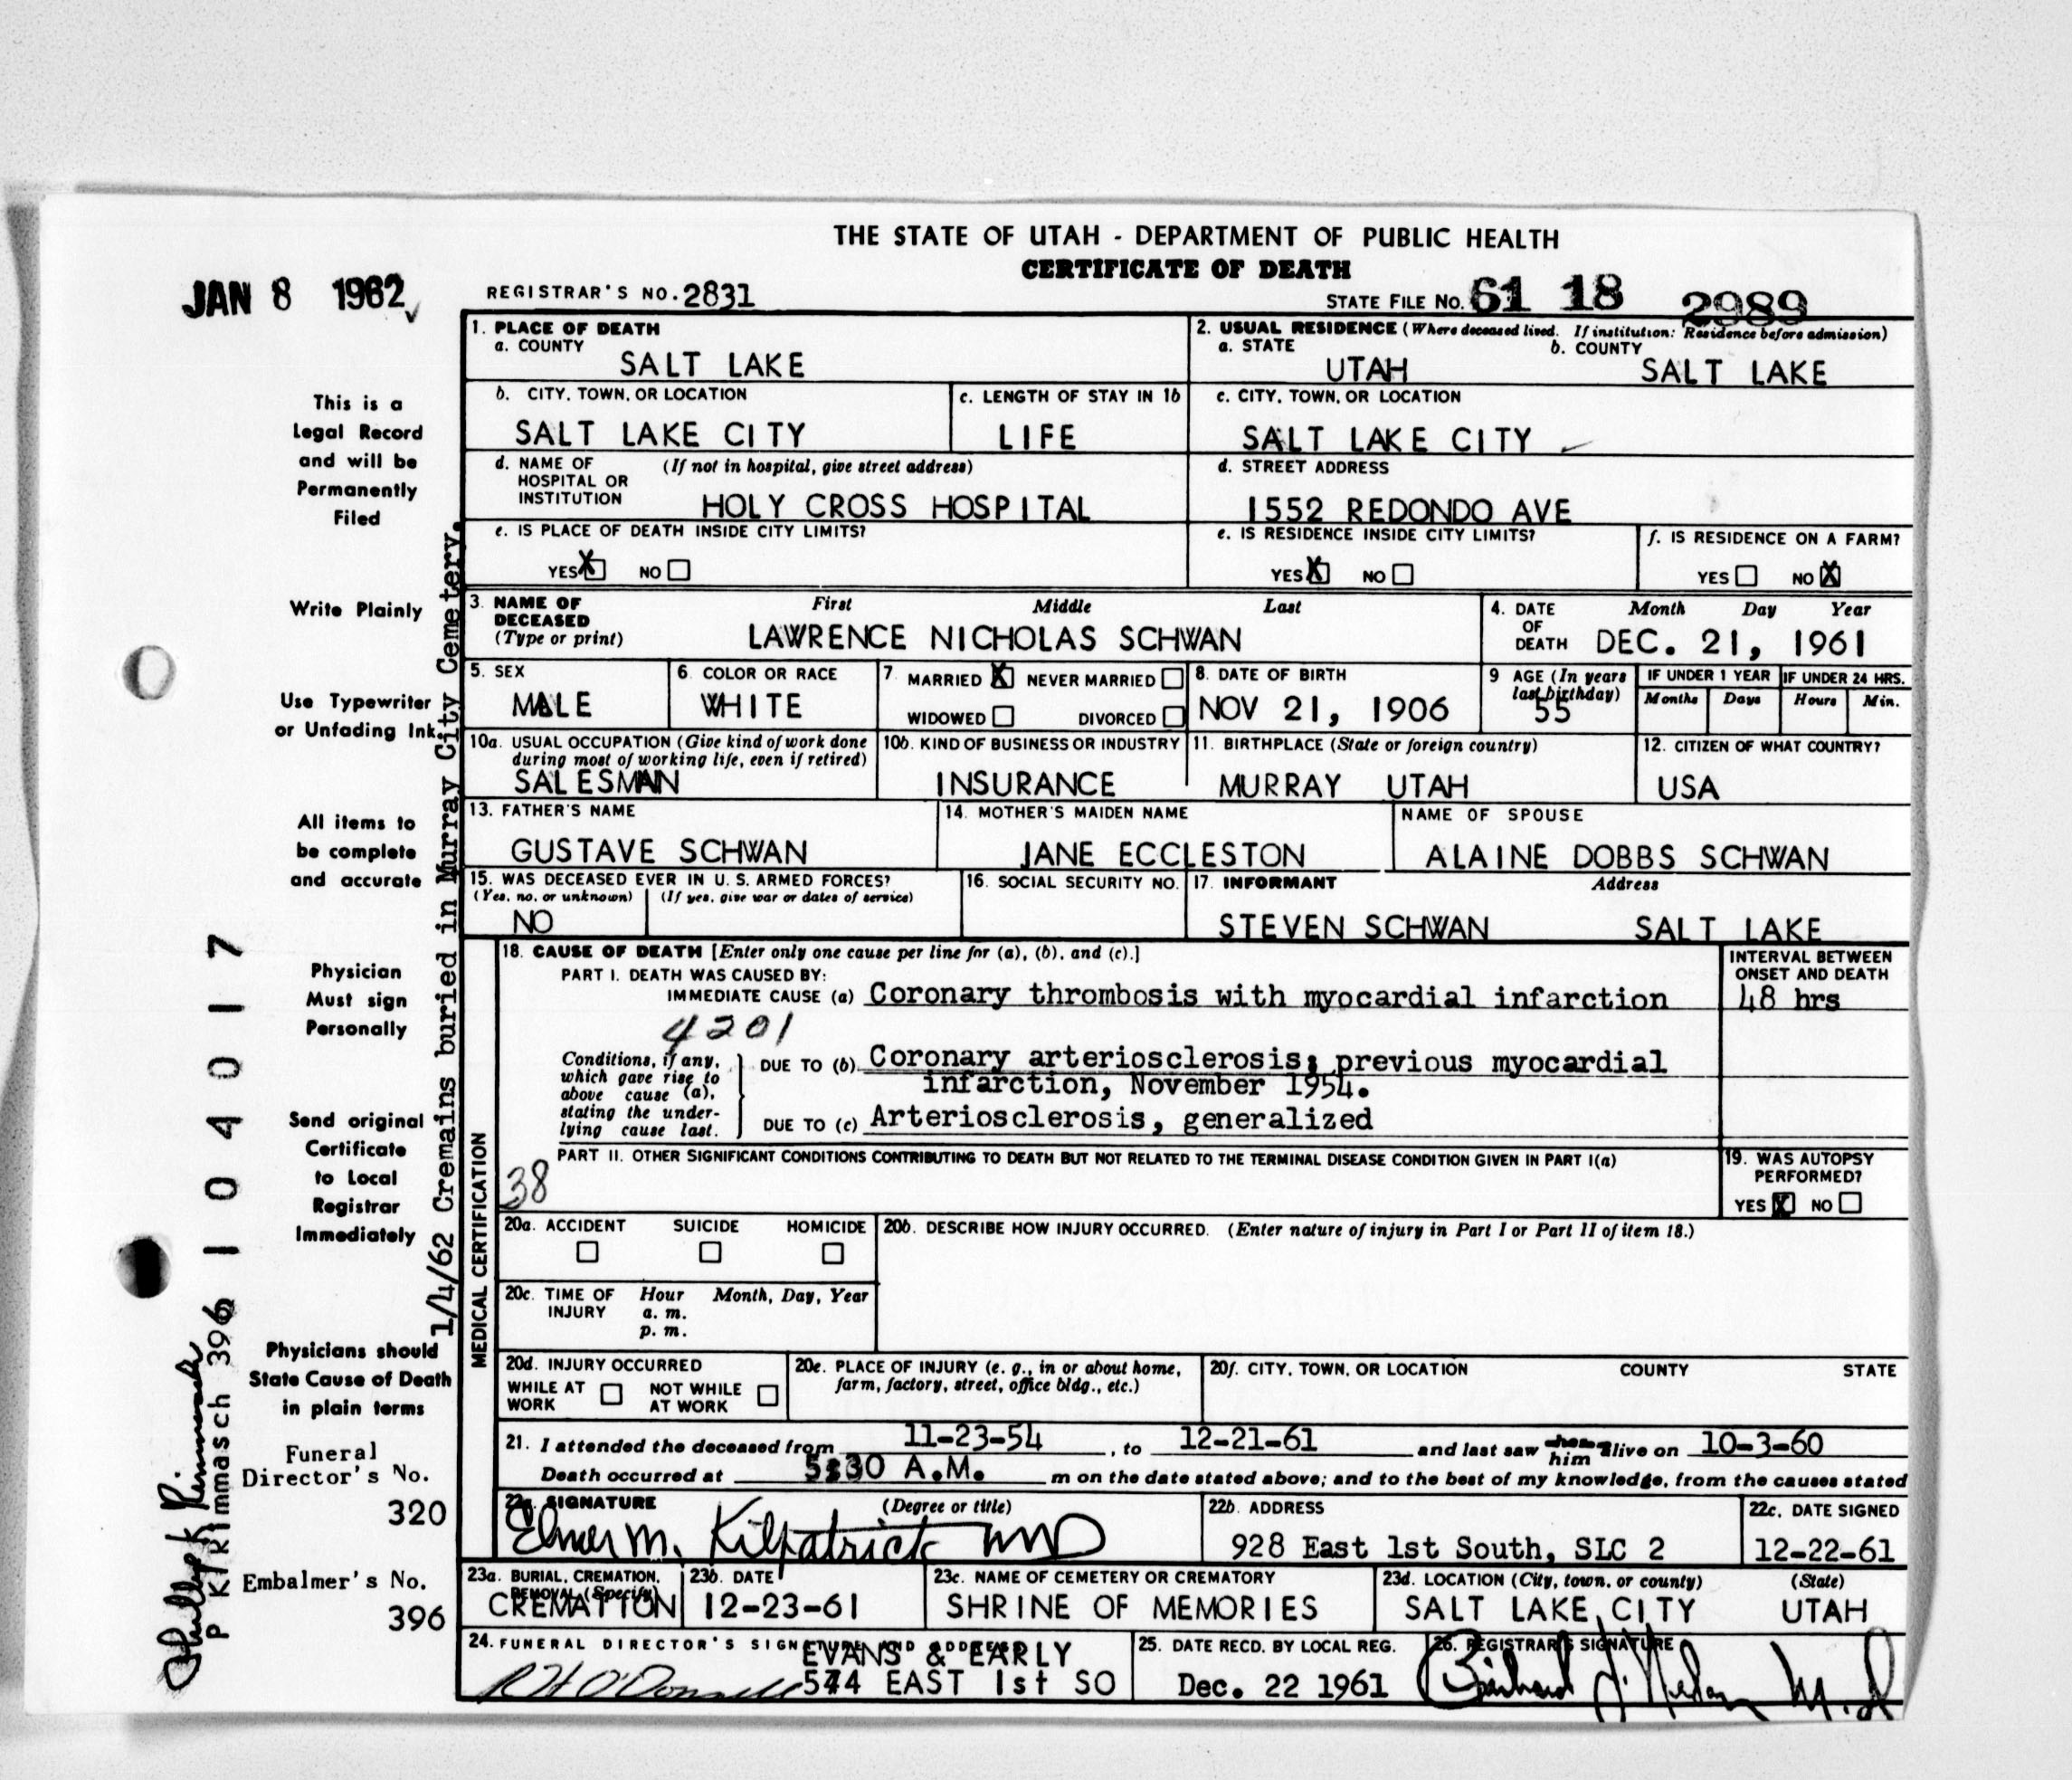 THE STATE OF UTAH - DEPARTMENT OF PUBLIC HEALTH
CERTIFICATE OF DEATH
JAN 8 1962
REGISTRAR'S NO. 2831
STATE FILE NO. 61 18 2989
1. PLACE OF DEATH
a. COUNTY
SALT LAKE
2. USUAL RESIDENCE (Where deceased lived. If institution: Residence before admission)
a. STATE
UTAH
b. COUNTY
SALT LAKE
b. CITY, TOWN, OR LOCATION
SALT LAKE CITY
c. LENGTH OF STAY IN 1b
LIFE
c. CITY, TOWN, OR LOCATION
SALT LAKE CITY
d. NAME OF HOSPITAL OR INSTITUTION (If not in hospital, give street address)
HOLY CROSS HOSPITAL
d. STREET ADDRESS
1552 REDONDO AVE
e. IS PLACE OF DEATH INSIDE CITY LIMITS?
YES X NO
e. IS RESIDENCE INSIDE CITY LIMITS?
YES X NO
f. IS RESIDENCE ON A FARM?
YES NO X
3. NAME OF DECEASED (Type or print)
First Middle Last
LAWRENCE NICHOLAS SCHWAN
4. DATE OF DEATH
Month Day Year
DEC. 21, 1961
5. SEX
MALE
6. COLOR OR RACE
WHITE
7. MARRIED X NEVER MARRIED
WIDOWED DIVORCED
8. DATE OF BIRTH
NOV 21, 1906
9 AGE (In years last birthday)
55
IF UNDER 1 YEAR
Months Days
IF UNDER 24 HRS.
Hours Min.
10a. USUAL OCCUPATION (Give kind of work done during most of working life, even if retired)
SALESMAN
10b. KIND OF BUSINESS OR INDUSTRY
INSURANCE
11. BIRTHPLACE (State or foreign country)
MURRAY UTAH
12. CITIZEN OF WHAT COUNTRY?
USA
13. FATHER'S NAME
GUSTAVE SCHWAN
14. MOTHER'S MAIDEN NAME
JANE ECCLESTON
NAME OF SPOUSE
ALAINE DOBBS SCHWAN
15. WAS DECEASED EVER IN U. S. ARMED FORCES?
(Yes, no, or unknown) (If yes, give war or dates of service)
NO
16. SOCIAL SECURITY NO.
17. INFORMANT Address
STEVEN SCHWAN SALT LAKE
MEDICAL CERTIFICATION
18. CAUSE OF DEATH [Enter only one cause per line for (a), (b), and (c).]
PART I. DEATH WAS CAUSED BY:
IMMEDIATE CAUSE (a) Coronary thrombosis with myocardial infarction
INTERVAL BETWEEN ONSET AND DEATH
48 hrs
4201
Conditions, if any, which gave rise to above cause (a), stating the underlying cause last.
DUE TO (b) Coronary arteriosclerosis; previous myocardial
infarction, November 1954.
DUE TO (c) Arteriosclerosis, generalized
PART II. OTHER SIGNIFICANT CONDITIONS CONTRIBUTING TO DEATH BUT NOT RELATED TO THE TERMINAL DISEASE CONDITION GIVEN IN PART I(a)
38
19. WAS AUTOPSY PERFORMED?
YES X NO
20a. ACCIDENT SUICIDE HOMICIDE
20b. DESCRIBE HOW INJURY OCCURRED. (Enter nature of injury in Part I or Part II of item 18.)
20c. TIME OF INJURY Hour a. m. p. m. Month, Day, Year
20d. INJURY OCCURRED
WHILE AT WORK NOT WHILE AT WORK
20e. PLACE OF INJURY (e. g., in or about home, farm, factory, street, office bldg., etc.)
20f. CITY, TOWN, OR LOCATION COUNTY STATE
21. I attended the deceased from 11-23-54, to 12-21-61 and last saw her him alive on 10-3-60
Death occurred at 5:30 A.M. m on the date stated above; and to the best of my knowledge, from the causes stated
22a. SIGNATURE (Degree or title)
Elmer M. Kilpatrick MD
22b. ADDRESS
928 East 1st South, SLC 2
22c. DATE SIGNED
12-22-61
23a. BURIAL, CREMATION, REMOVAL (Specify)
CREMATION
23b. DATE
12-23-61
23c. NAME OF CEMETERY OR CREMATORY
SHRINE OF MEMORIES
23d. LOCATION (City, town, or county) (State)
SALT LAKE CITY UTAH
24. FUNERAL DIRECTOR'S SIGNATURE AND ADDRESS
EVANS & EARLY
R H O'Donnell 574 EAST 1st SO
25. DATE RECD. BY LOCAL REG.
Dec. 22 1961
26. REGISTRAR'S SIGNATURE
This is a
Legal Record
and will be
Permanently
Filed
Write Plainly
Use Typewriter
or Unfading Ink.
All items to
be complete
and accurate
Physician
Must sign
Personally
Send original
Certificate
to Local
Registrar
Immediately
Physicians should
State Cause of Death
in plain terms
Funeral
Director's No.
320
Embalmer's No.
396
1/4/62 Cremains buried in Murray City Cemetery.
1 0 4 0 1 7
P K Rimmasch 396